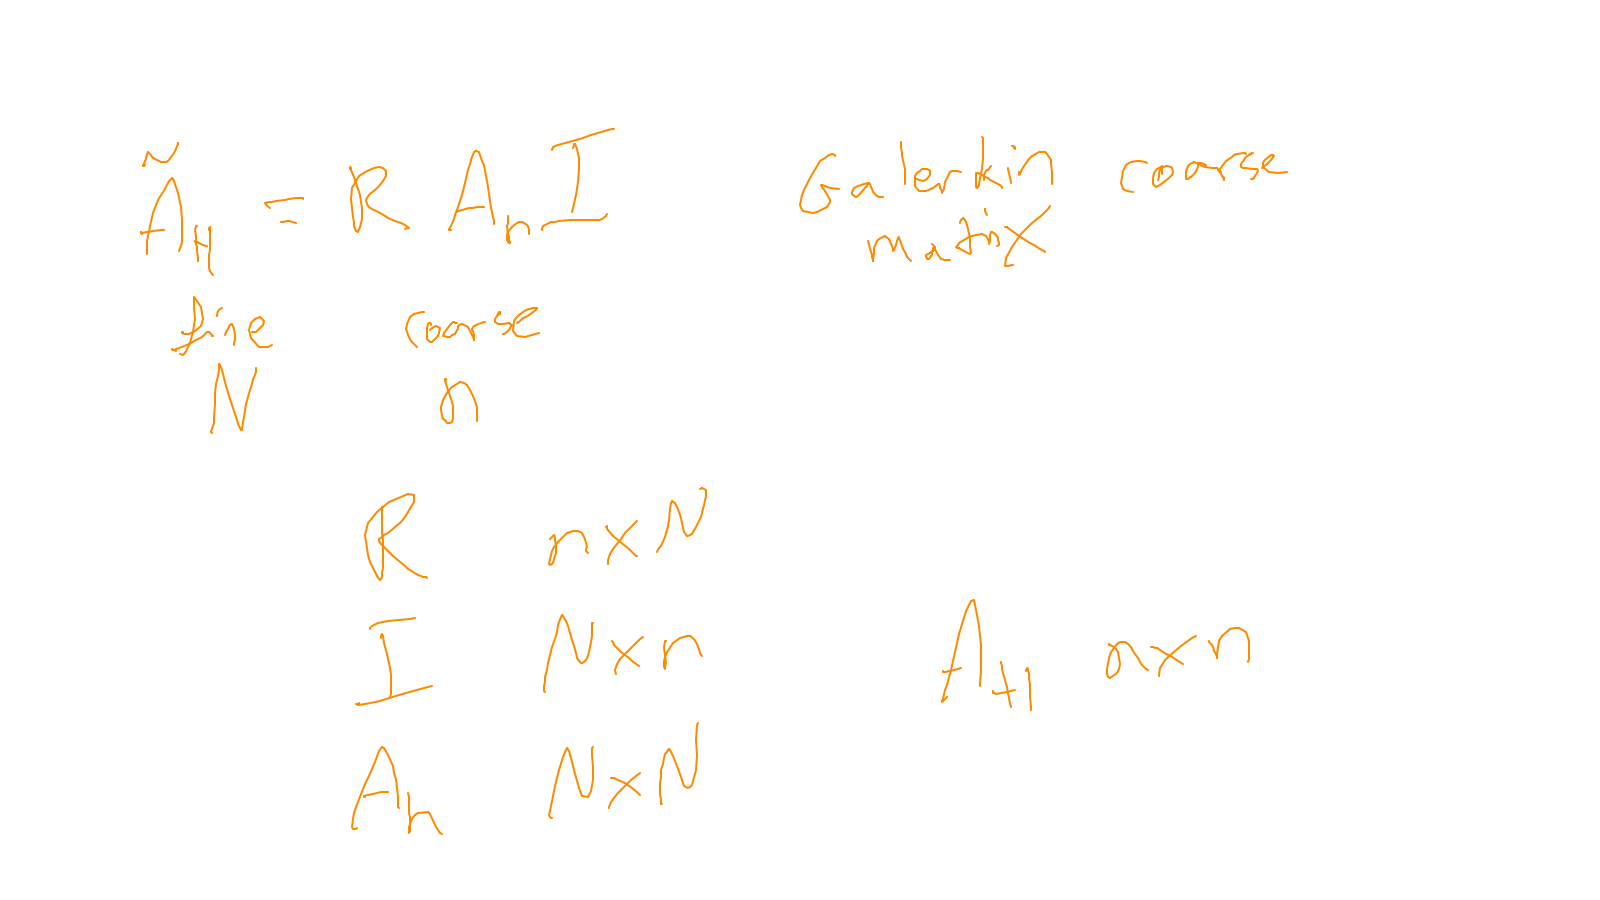 Ã_H = R A_h I Galerkin coarse
matrix
fine coarse
N n
R n×N
I N×n A_H n×n
A_h N×N